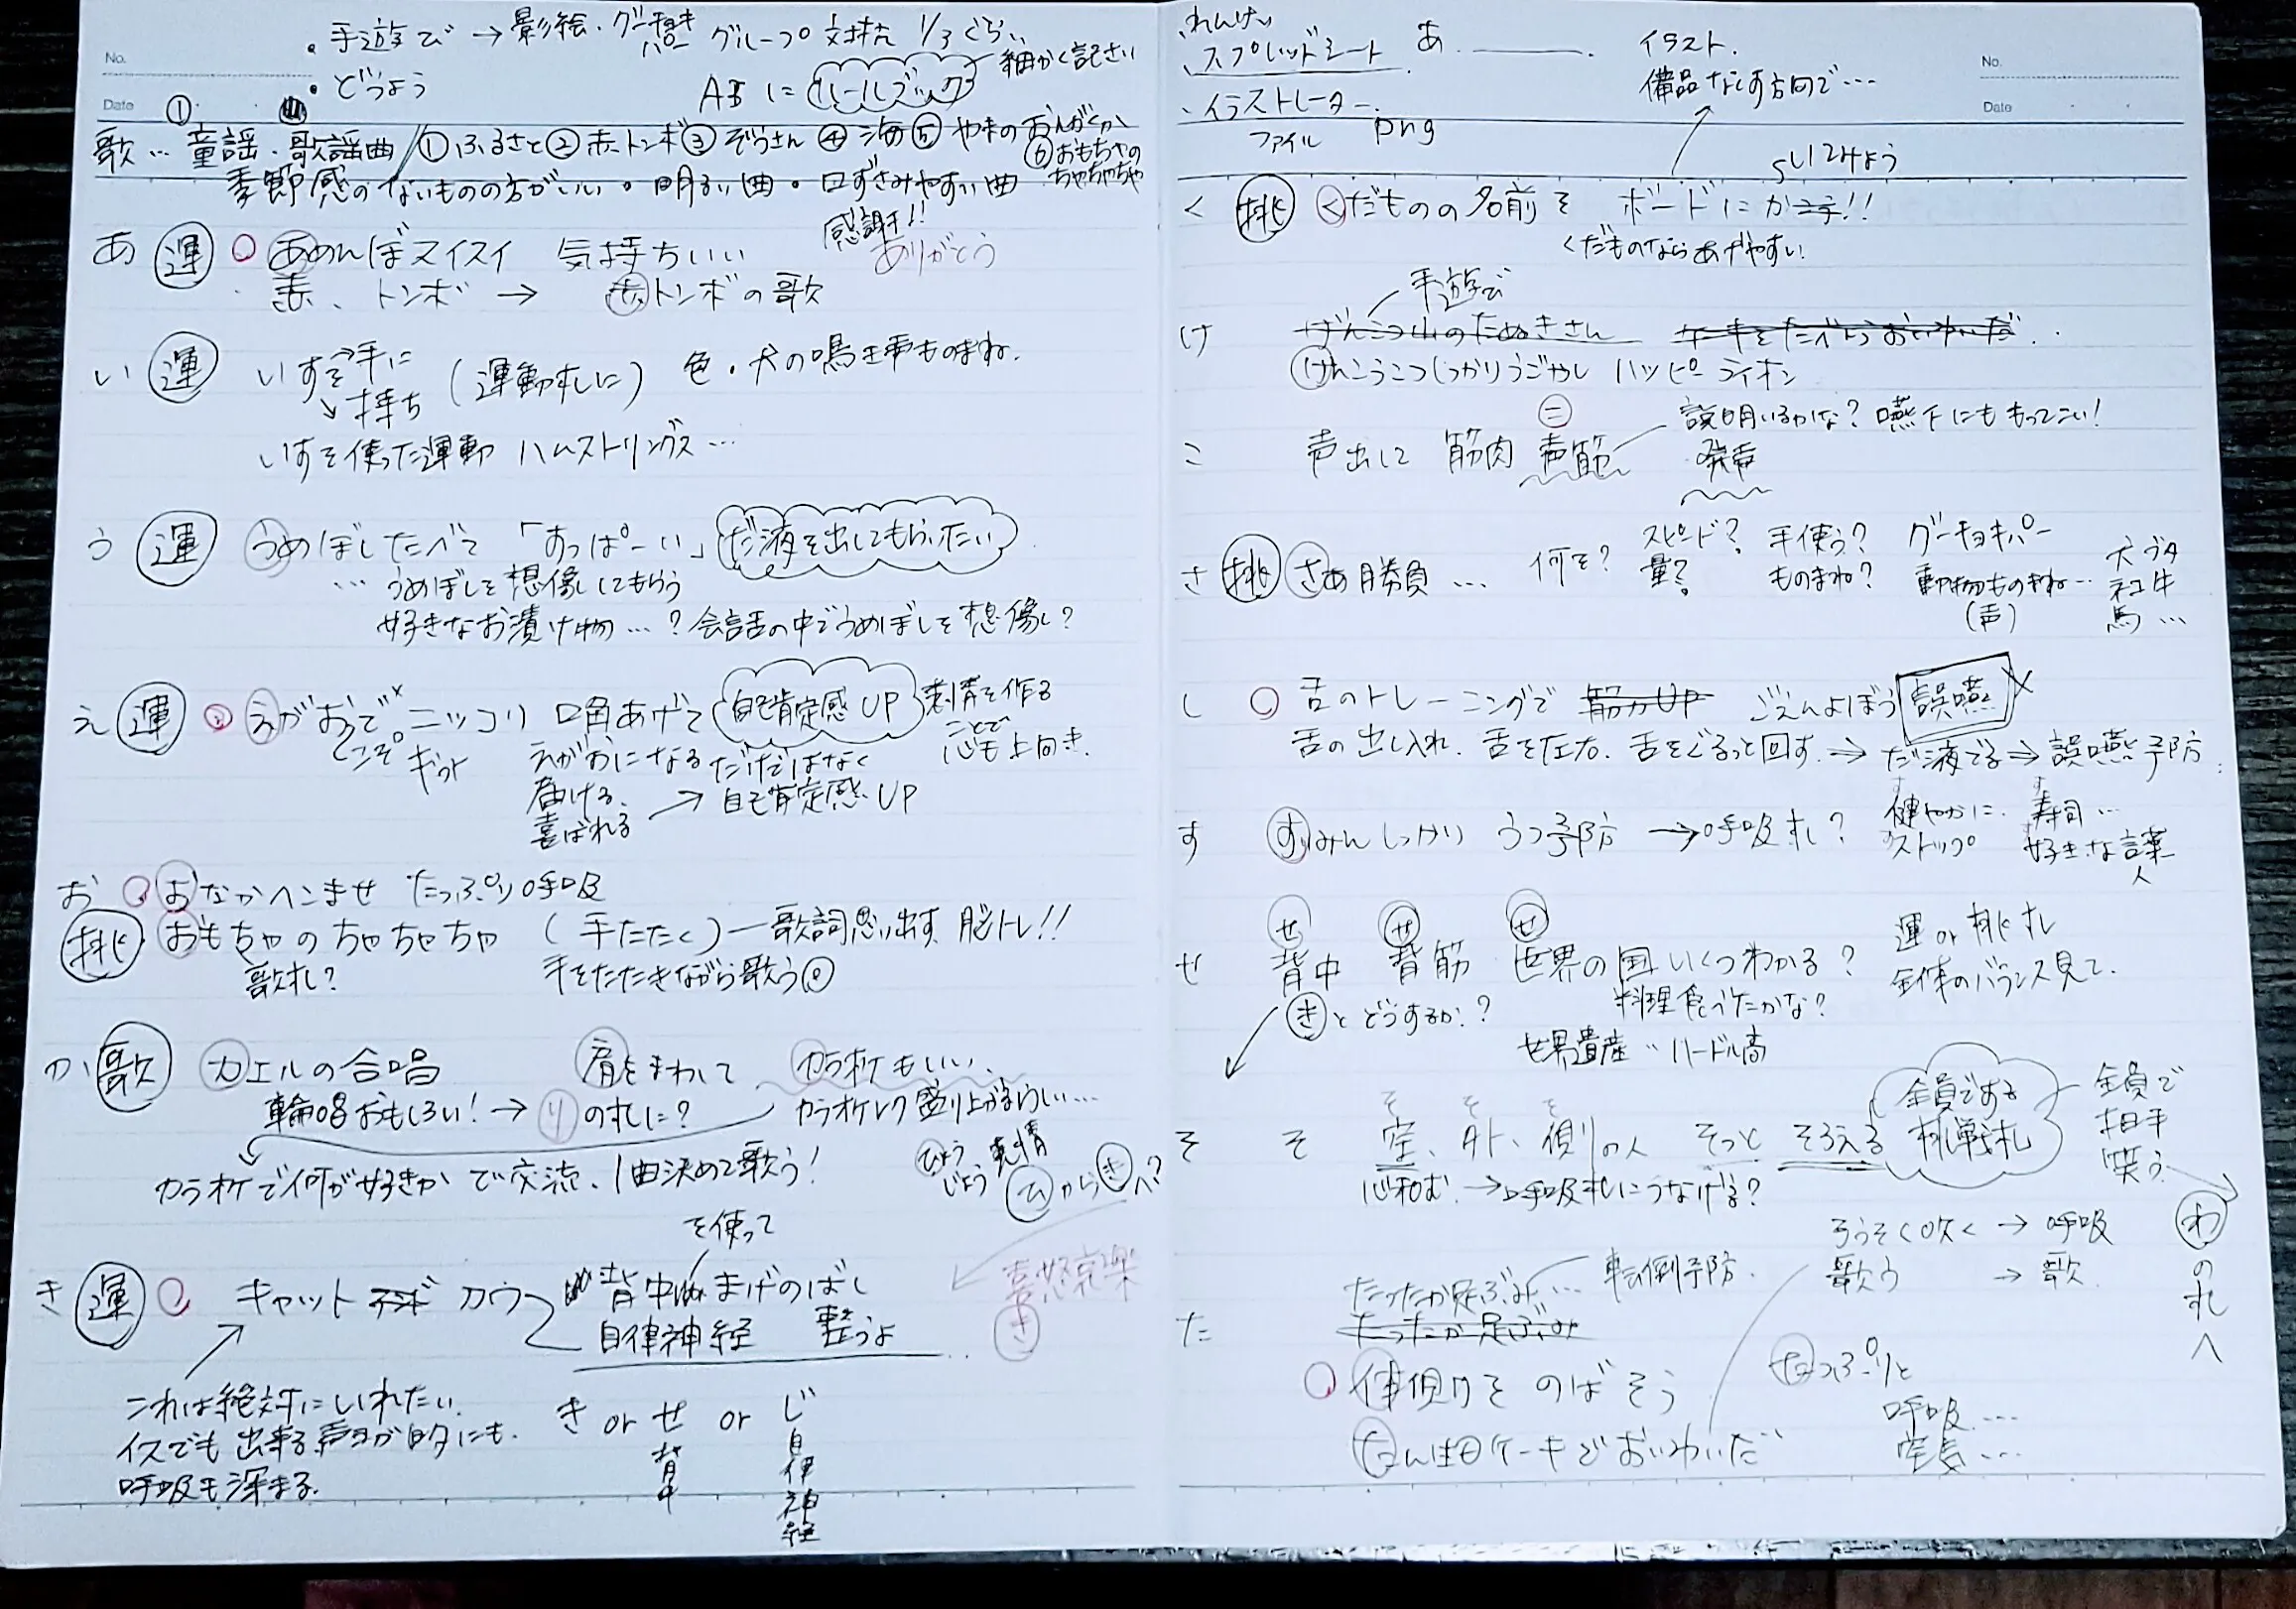 ・手遊び → 影絵・グーチョキパー グループ対抗 1/3ぐらい
・どうよう
ABに ルールブック 細かく記さい
No.
Date
歌… 童謡・歌謡曲 ①ふるさと ②赤トンボ ③ぞうさん ④海 ⑤やまのおんがくか
⑥おもちゃのちゃちゃちゃ
季節感のないものの方がいい。明るい曲。口ずさみやすい曲
あ 運 あめんぼスイスイ 気持ちいい
感謝!! ありがとう
赤、トンボ → 赤トンボの歌
い 運 いすを→手に
持ち
(運動札に) 色・犬の鳴き声ものまね.
いすを使った運動 ハムストリングス…
う 運 うめぼしたべて「すっぱーい」だ液を出してもらいたい
… うめぼしを想像してもらう
好きなお漬け物…? 会話の中でうめぼしを想像し?
え 運 えがおで ニッコリ 口角あげて 自己肯定感UP
こそ ギフト
表情を作る
ことで
心も上向き.
えがおになるだけではなく
届ける、
喜ばれる → 自己肯定感UP
お おなかへこませ たっぷり呼吸
挑 おもちゃのちゃちゃちゃ (手たたく)ー歌詞思い出す 脳トレ!!
歌札? 手をたたきながら歌う
か 歌 カエルの合唱 肩をまわして カラオケもいい、
輪唱おもしろい!→ り の札に? カラオケレク盛り上がるらしい…
カラオケで何が好きかで交流、1曲決めて歌う!
ひょうじょう 表情
ひ から き へ?
を使って
き 運 キャット カウ 背中 まげのばし
自律神経 整うよ
喜怒哀楽
き
これは絶対にいれたい.
イスでも出来る
呼吸も深まる.
き or せ or じ
背中
自律神経
れんけい
スプレッドシート あ.
・イラストレーター.
ファイル png
イラスト.
備品なくす方向で…
No.
Date
く 挑 くだものの名前を ボードに
くだものならあげやすい
け げんこつ山のたぬきさん
手遊び
けんこうこつしっかりうごかし ハッピーライオン
こ 声出して 筋肉 声筋
説明いるかな? 嚥下にももってこい!
発声
さ 挑 さあ勝負… 何を? スピード? 手使う? グーチョキパー
量? ものまね? 動物ものまね…
(声)
犬ブタ
ネコ牛
馬…
し 舌のトレーニングで 筋力UP ごえんよぼう 誤嚥
舌の出し入れ. 舌を左右. 舌をぐるっと回す.⇒ だ液でる⇒ 誤嚥予防
す すいみんしっかり うつ予防 →呼吸札?
健やかに. 寿司…
ストップ 好きな言葉
人
せ せ せ
せ 背中 背筋 世界の国いくつわかる?
運 or 挑札
全体のバランス見て.
き とどうするか.? 料理食べたかな?
世界遺産…ハードル高
そ そ そ
そ そ 空、外、側の人 そっと そろえる
全員でする
挑戦札
全員で
拍手
笑う
心和む.→呼吸札につなげる?
わ
の
札
へ
ろうそく吹く → 呼吸
歌う → 歌.
たったか足ぶみ… 転倒予防.
た たったか足ぶみ
体側を のばそう
たっぷりと
呼吸…
空気…
たん生日ケーキでおいわいだ